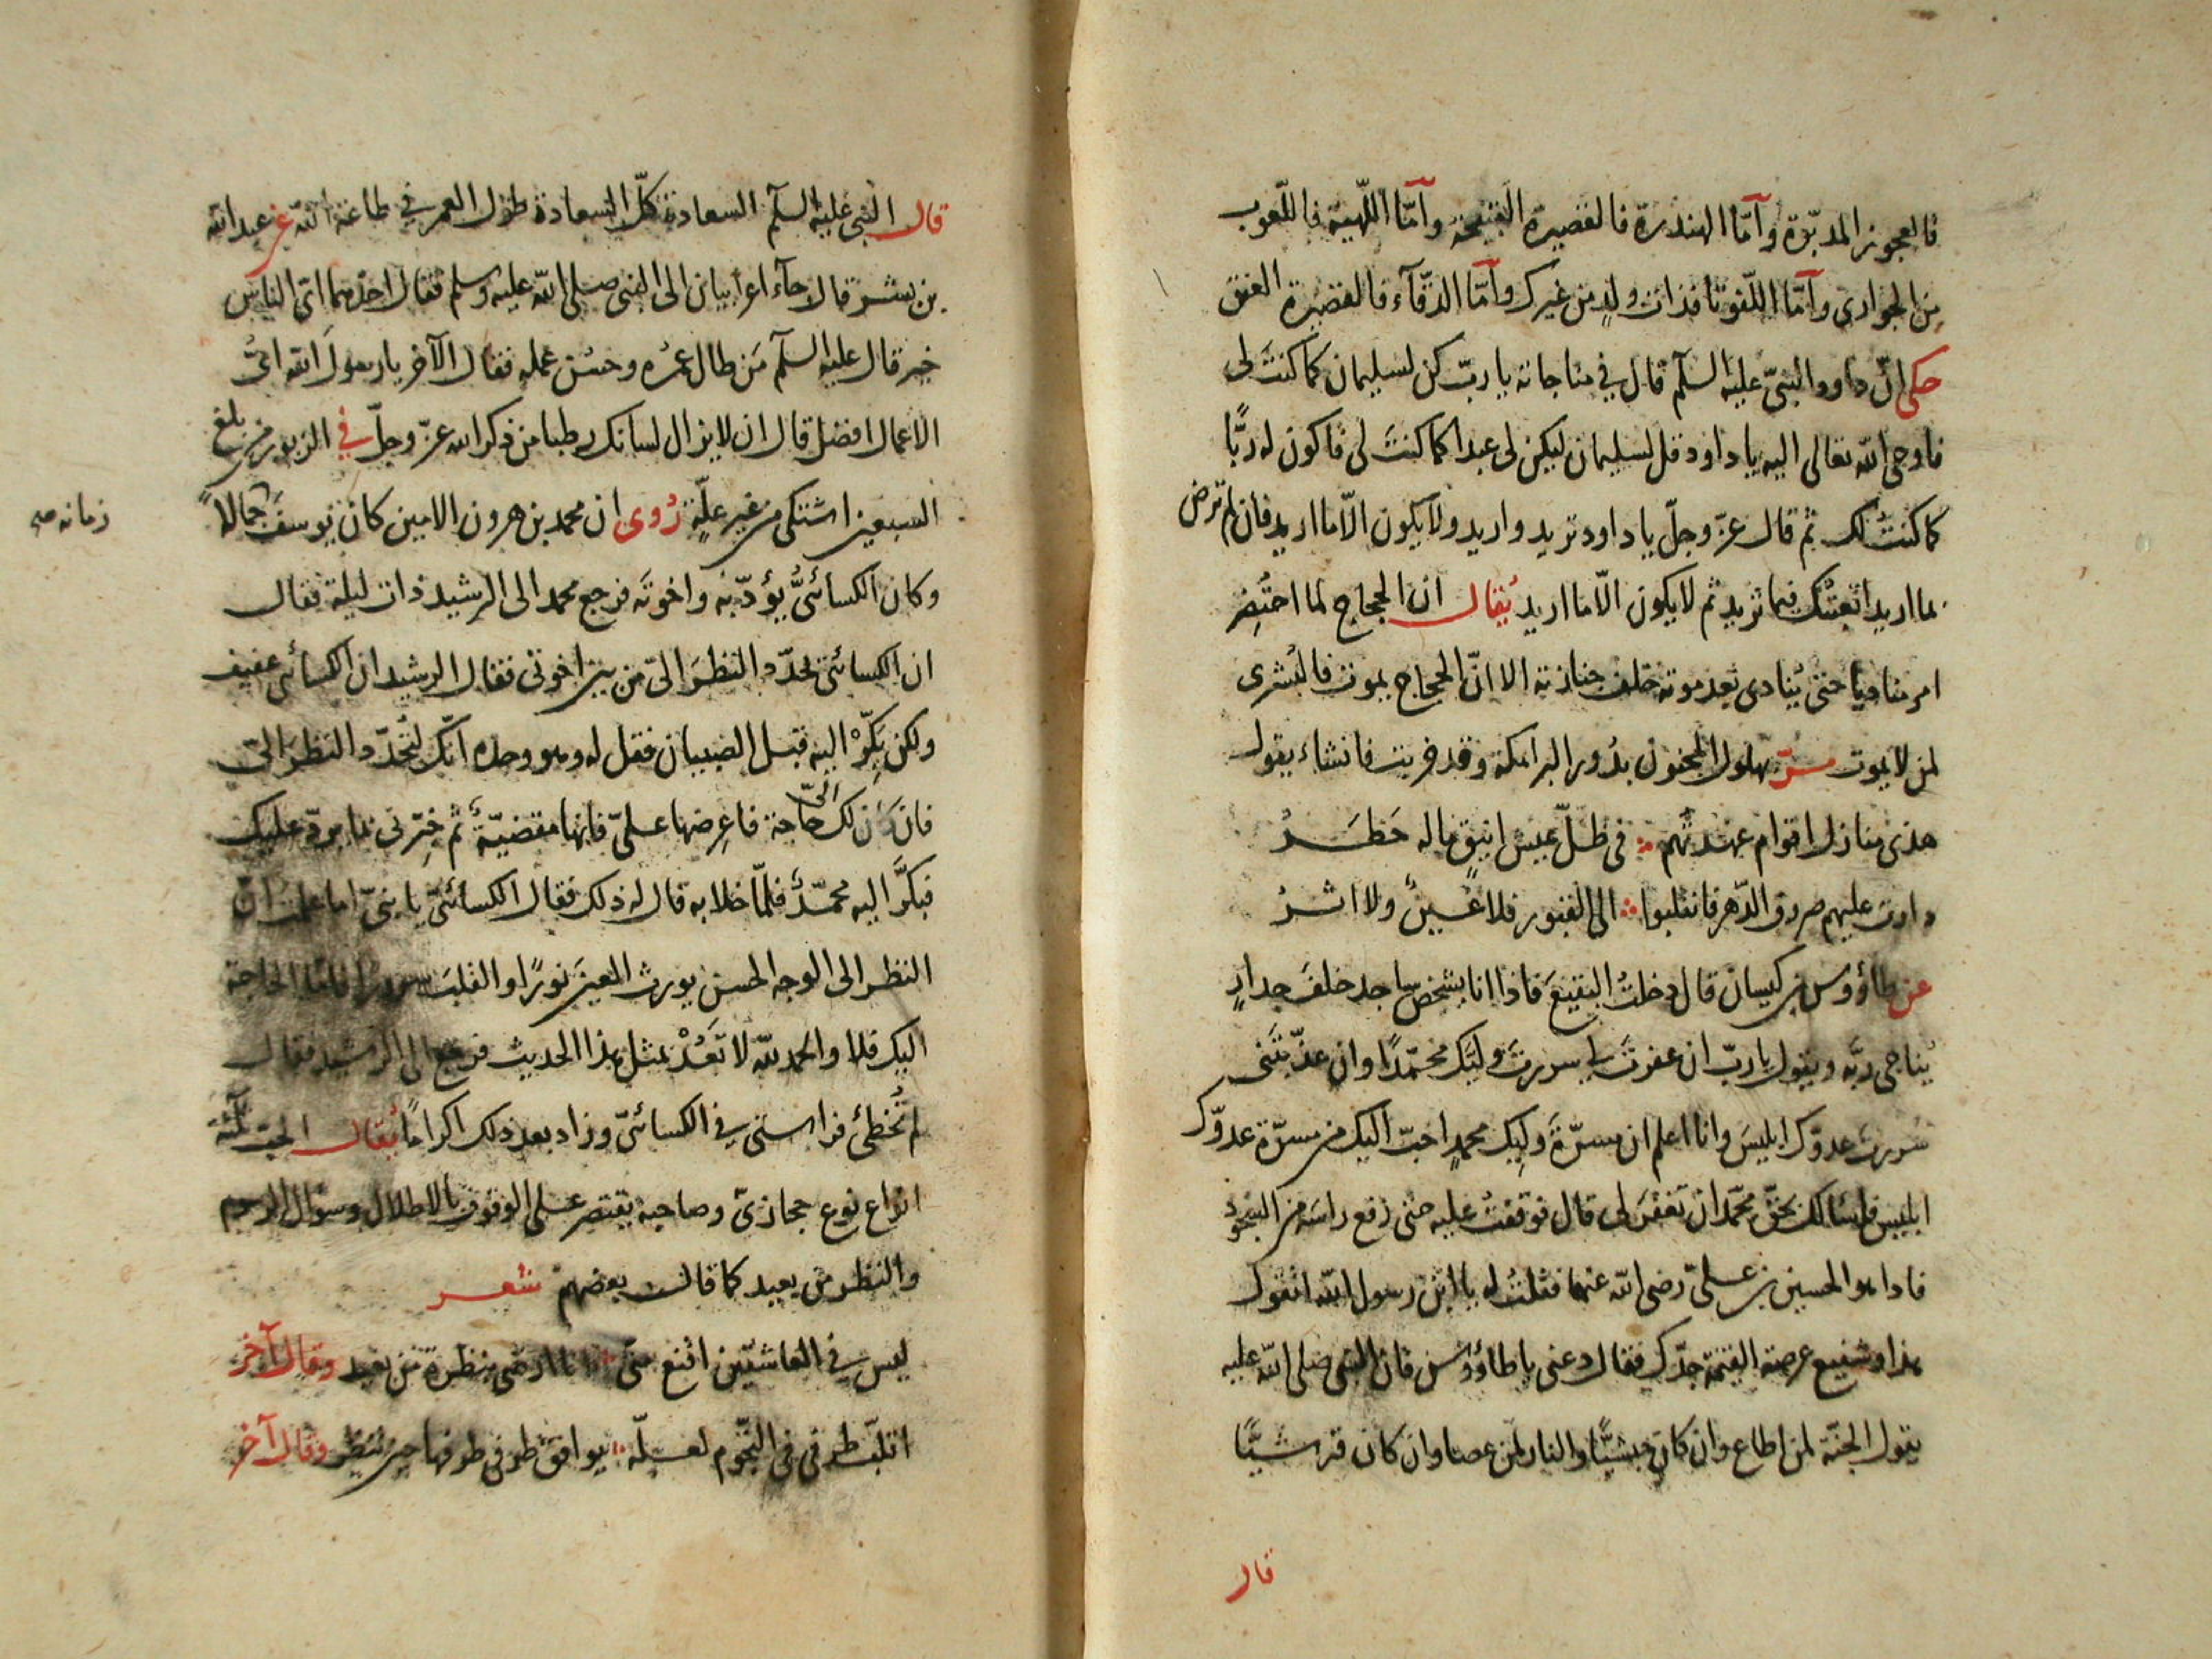 فالعجوز المدبّرة وأمّا الهندرة فالقصيرة القبيحة وأمّا اللّهبة فاللّعوب
من الجواري وأمّا اللّفوتا فذات ولدٍ من غيرك وأمّا الدّقآء فالقصيرة العنق
حكى انّ داوود النبىّ عليه السلام قال في مناجاته يا ربّ كن لسليمان كما كنتَ لى
فاوحى الله تعالى اليه يا داود قل لسليمان ليكن لى عبدا كما كنتَ لى فاكون له ربًّا
كما كنتُ لك ثم قال عزّ وجلّ يا داود تريد واريد ولا يكون الّا ما اريد فان لم ترض
بما اريد اتعبتُك فيما تريد ثم لا يكون الّا ما اريد يُقال ان الحجاج لما احتُضِر
امر مناديًا حتى يُنادى بعد موته خلف جنازته الا انّ الحجاج يموت فالبُشرى
لمن لا يموت مرّ بهلول المجنون بدُور البرامكة وقد خربت فانشاء يقول
هذى منازل اقوام عهدتُهم ؞ فى ظلّ عيش انيقٍ ما له خَطَرُ
دارت عليهم صروف الدّهر فانقلبوا ؞ الى القبور فلا عَيْنٌ ولا اثرُ
عن طاؤوس بن كيسان قال دخلتُ البقيعَ فاذا انا بشخص ساجد خلفَ جدارٍ
يُناجى ربّه ويقول يا ربّ ان غفرتَ لى سررتَ وليّك محمّدًا وان عذّبتَنى
سررتَ عدوّك ابليسَ وانا اعلم ان مسرّةَ وليّك محمدٍ احبّ اليك من مسرّة عدوّك
ابليس فاسئالك بحقّ محمّد ان تغفرَ لى قال فوقفتُ عليه حتى رفع راسَه من السجود
فاذا هو الحسين بن علىّ رضى الله عنهما فقلتُ له يا ابن رسول الله اتقول
هذا وشفيع عرصة القيمة جدّك فقال دعنى يا طاؤوس فان النبى صلى الله عليه
يقول الجنّة لمن اطاع وان كان حبشيًّا والنار لمن عصا وان كان قرشيًّا
قال
قال النبى عليه السلام السعادة كلّ السعادة طول العمر في طاعة الله عن عبد الله
بن بشر قال جآء اعرابيان الى النبى صلى الله عليه وسلم فقال احدهما اىّ الناس
خير قال عليه السلام مَن طال عمُره وحسُن عمله فقال الآخر يا رسولَ الله اىُّ
الاعمال افضل قال ان لا يزال لسانك رطبا من ذكر الله عزّ وجلّ في الزبور من بلغ
السبعين اشتكى من غير علّةٍ رُوى ان محمد بن هرون الامين كان يوسفَ جمالاً
زمانه صح
وكان الكسائىُّ يؤدّبه واخوتَه فرجع محمد الى الرشيد ذات ليلة فقال
ان الكسائىّ يُحدّد النظرَ الىّ من بين اخوتى فقال الرشيد ان الكسائى عفيف
ولكن بَكِّرْ اليه قبل الصبيان فقل له وهو وحده انّك لتُحدّد النظر الىّ
فان كان لك الىّ حاجة فاعرِضها علىّ فانها مقضيّةٌ ثم خبّرنى بما يردّ عليك
فبكّرَ اليه محمّدٌ فلمّا خلا به قال له ذلك فقال الكسائىّ يا بنىّ اما علمتَ انّ
النظر الى الوجه الحسن يورث العينَ نورًا والقلبَ سرورًا فامّا الحاجة
اليك فلا والحمد لله لا تَعُدْ بمثل هذا الحديث فرجع الى الرشيد فقال
لم تُخطئ فراستى فى الكسائىّ وزاد بعد ذلك اكرامًا يُقال الحبّ ثلثة
انواع نوع حجازىّ وصاحبه يقتصر على الوقوف بالاطلال وسؤال الرسوم
والنظر من بعيد كما قالت بعضهم شعر
ليس فى العاشقين اقنع منّى ؞ انا ارضى بنظرة من بعيد وقال آخر
اقلّب طرفى فى النجّوم لعلّه ؞ يوافق طرفى طرفها حين تنظر وقال آخر